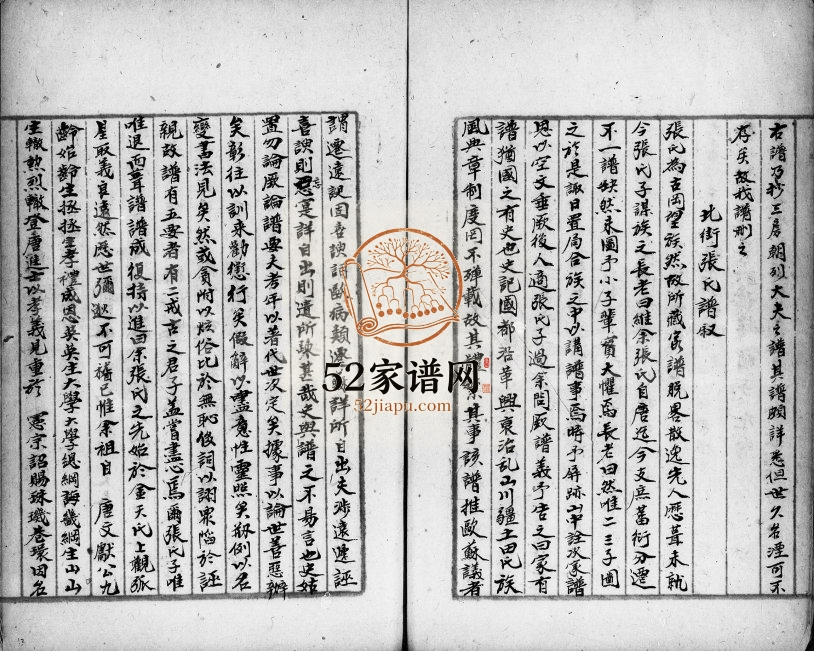 右譜乃抄三房朝列大夫之譜其譜頗詳悉但世久名湮可不
存矣故我譜刪之
北街張氏譜叙
張氏為古岡望族然故所藏家譜脫畧散逸先人歷葺未就
今張氏子謀族之長老曰維余張氏自唐迄今支庶蕃衍分遷
不一譜缺然未圖予小子輩實大懼焉長老曰然唯二三子圖
之於是諏日置局合族之中以講譜事焉時予屏跡山中詮次家譜
思以空文垂厥後人適張氏子過余問厥譜義予告之曰家有
譜猶國之有史也史記國都沿革興衰治乱山川疆土田氏族
風典章制度罔不殫載故其事該譜推歐蘇議者
謂遷遠記固喜諛詳所自出夫涉遠遷誣
喜諛則忘是詳自出則遺所染甚哉史與譜之不易言也史姑
置勿論厥論譜要夫考年以著代世次定矣據事以論世善惡辦
矣彰往以訓來勸懲行矣假解以盡意性靈照矣刱例以名
變書法見矣然或貪附以炫俗比於無恥侈詞以謝眾陷於誣
親故譜有五要者有二戒古之君子盖嘗盡心焉爾張氏子唯
唯退而葺譜譜成復持以進曰余張氏之先始於金天氏上觀弧
星取義良遠然歷世彌逖不可稽已惟余祖自 唐文獻公九
齡始齡生拯拯生孝禮成恩英英生大學大學緦綱誨幾綱生山山
生轍勲烈轍登唐進士以孝義見重於 憲宗詔賜珠璣巷環因名
52家谱网
52jiapu.com